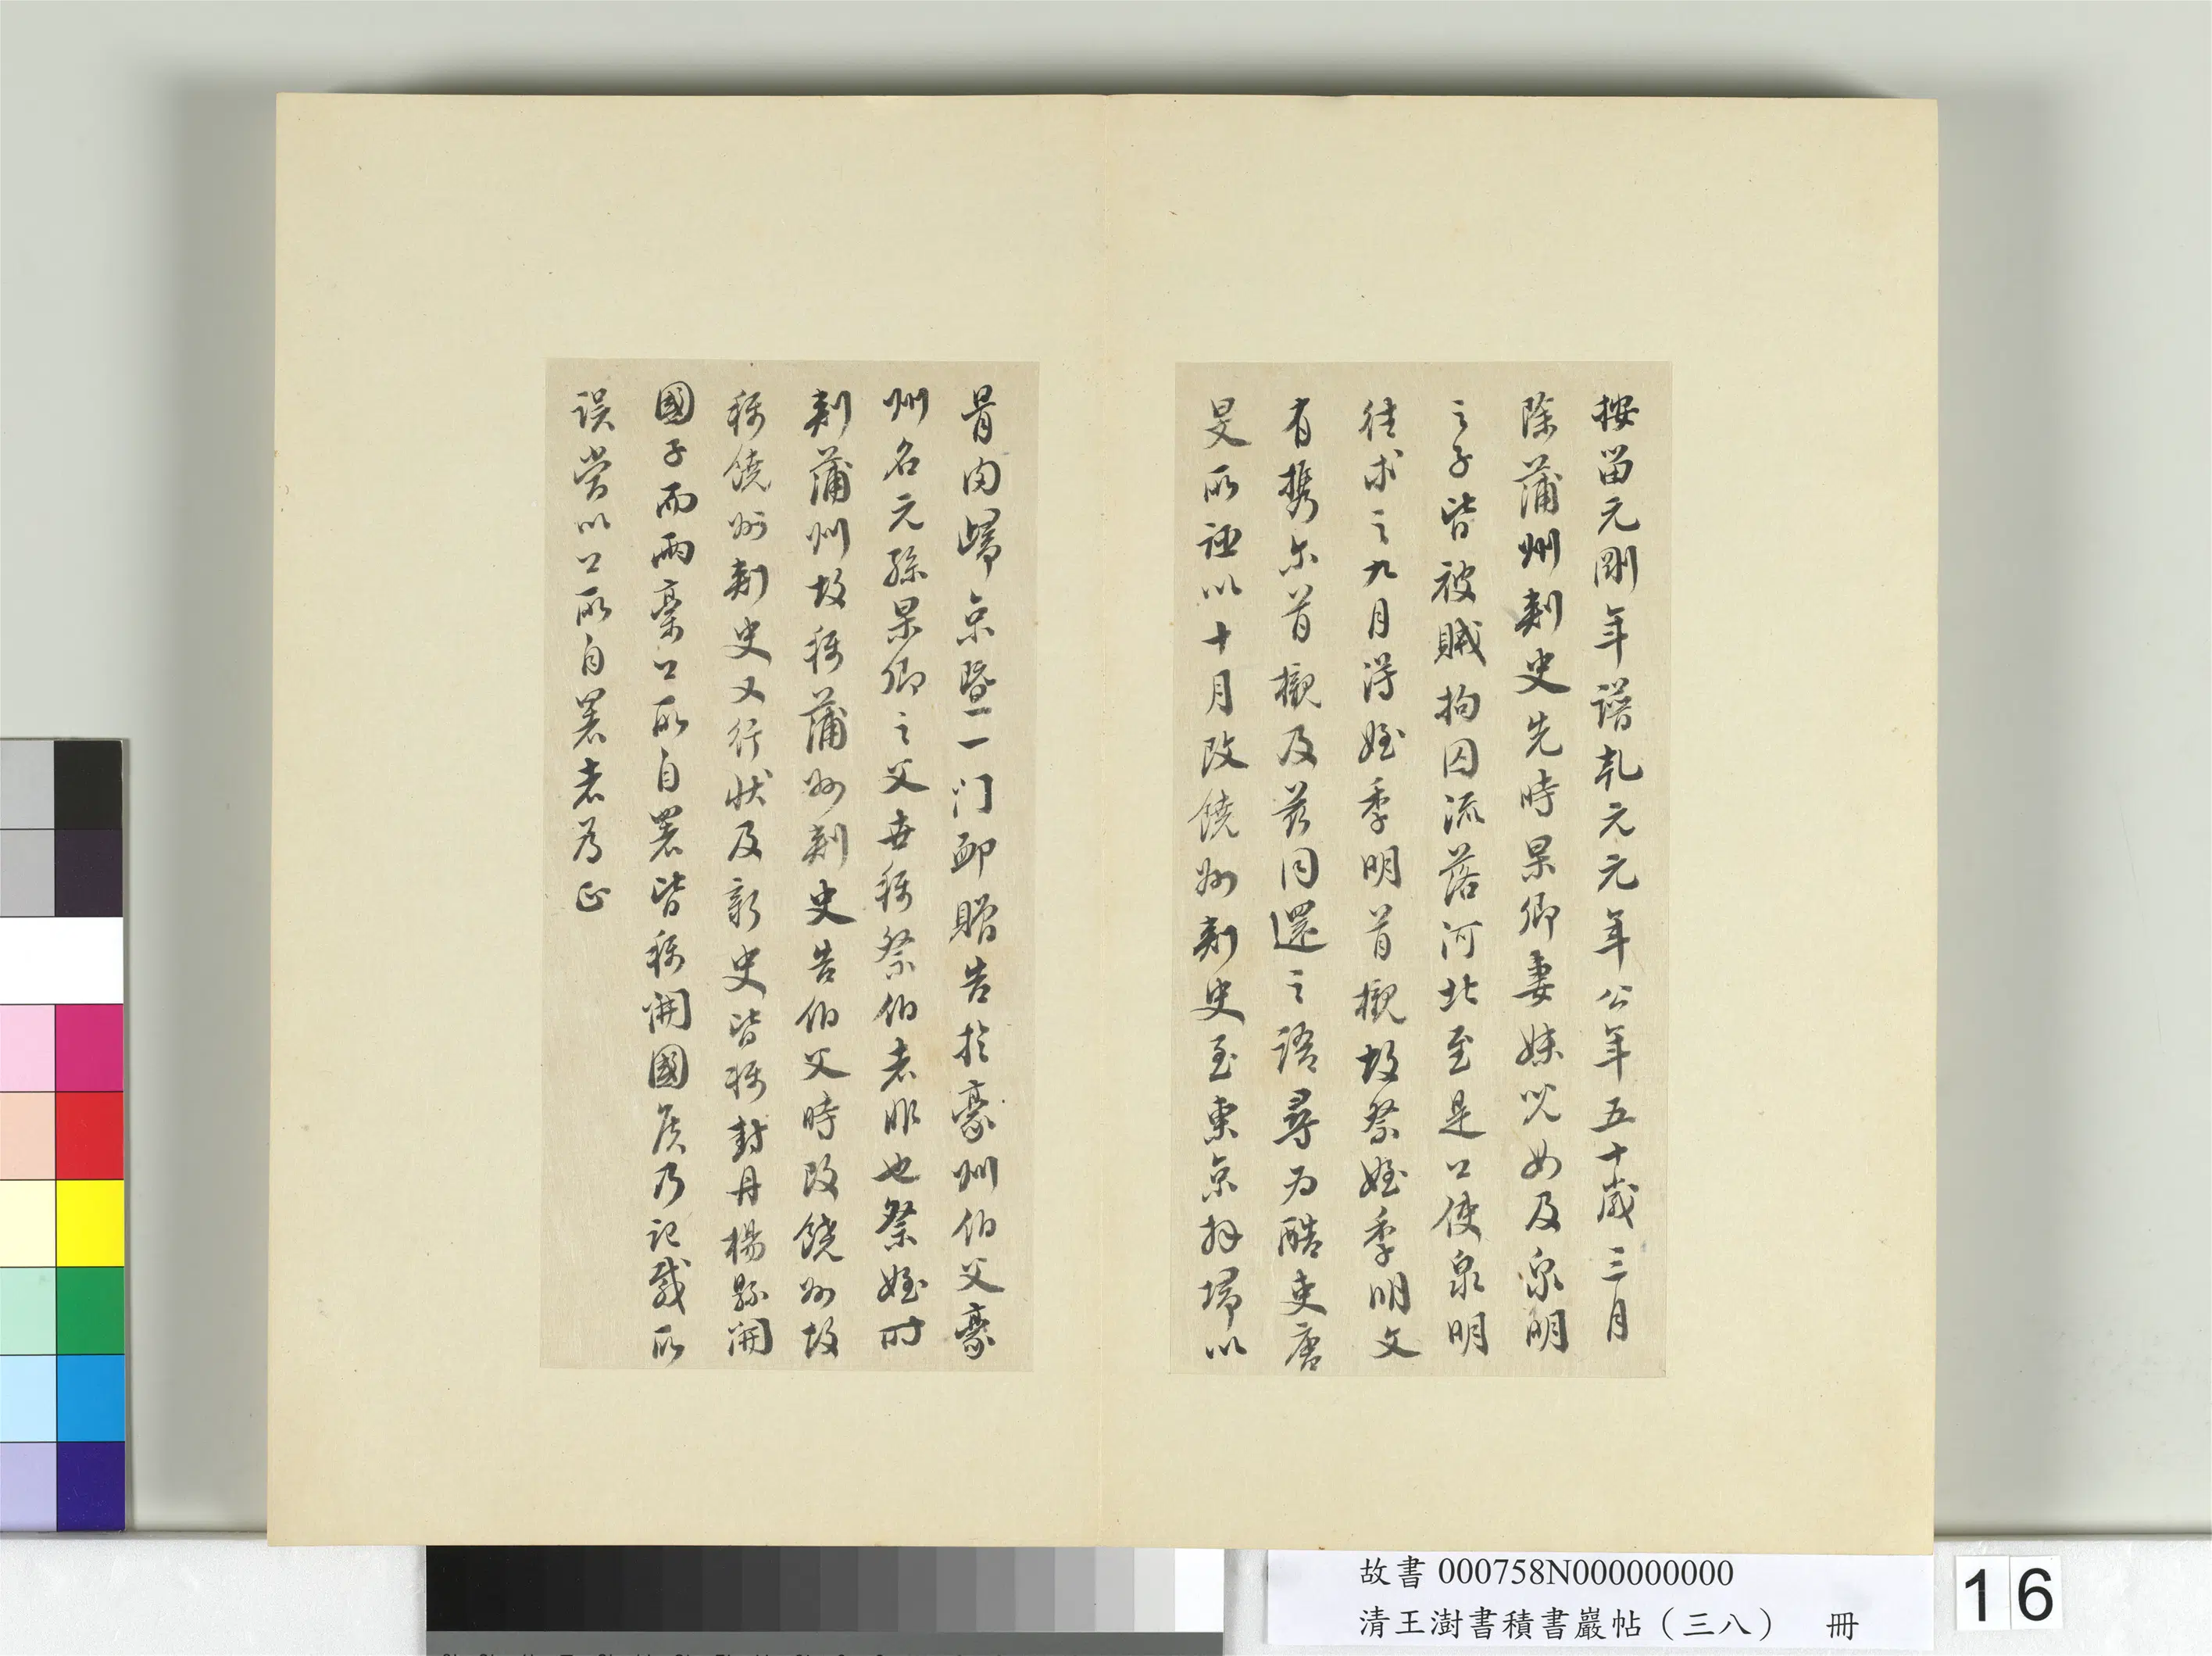 按留元剛年譜乹元元年公年五十歲三月
除蒲州刺史先時杲卿妻妹兒女及泉明
之子皆被賊拘囚流落河北至是公使泉明
往求之九月得姪季明首櫬故祭姪季明文
有攜尔首櫬及茲同還之語尋為酷吏唐
旻所誣以十月改饒州刺史至東京拜埽以
骨肉歸京暨一门卹贈告於豪州伯父豪
州名元孫杲卿之父世稱祭伯者非也祭姪时
刺蒲州故稱蒲州刺史告伯父時改饒州故
稱饒州刺史又行狀及新史皆稱封丹楊縣開
國子而兩稾公所自署皆稱開國侯乃記載所
误當以公所自署者為正
故書 000758N000000000
清王澍書積書巖帖（三八） 冊
16